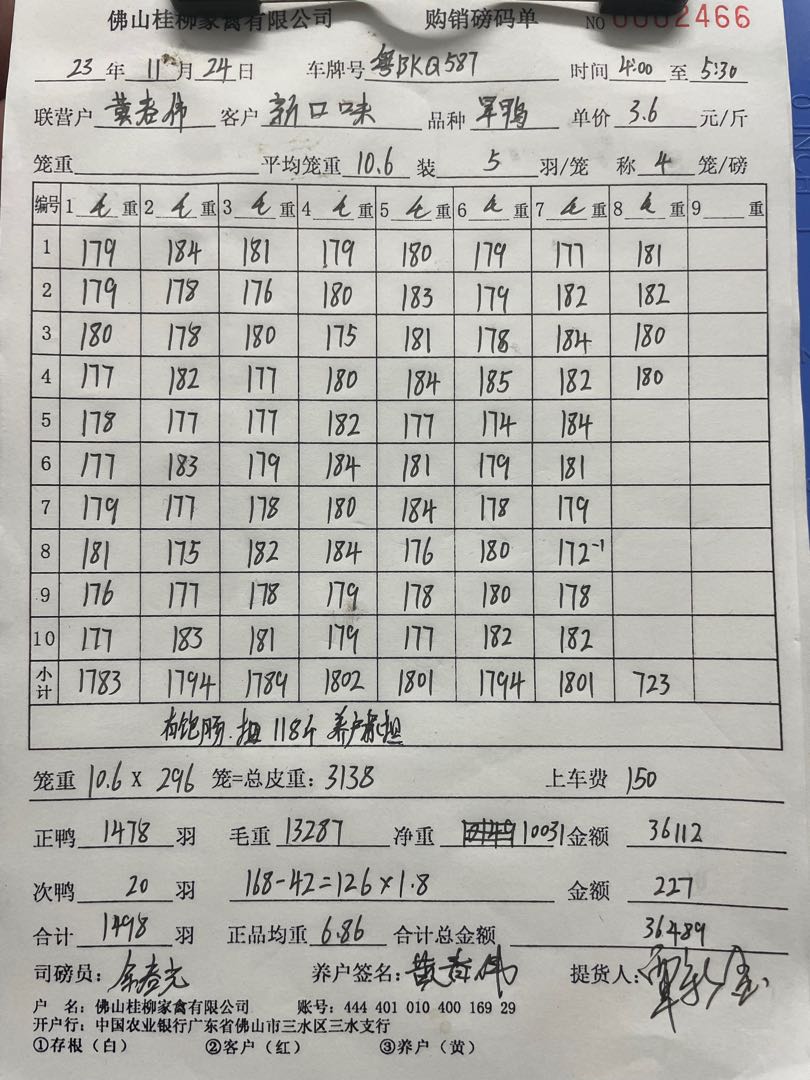 佛山桂柳家禽有限公司 购销磅码单 NO 0002466
23 年 11 月 24 日 车牌号 粤BKQ587 时间 4:00 至 5:30
联营户 黄春伟 客户 新口味 品种 旱鸭 单价 3.6 元/斤
笼重 平均笼重 10.6 装 5 羽/笼 称 4 笼/磅
编号 1 毛 重 2 毛 重 3 毛 重 4 毛 重 5 毛 重 6 毛 重 7 毛 重 8 毛 重 9 重
1 179 184 181 179 180 179 177 181
2 179 178 176 180 183 179 182 182
3 180 178 180 175 181 178 184 180
4 177 182 177 180 184 185 182 180
5 178 177 177 182 177 174 184
6 177 183 179 184 181 179 181
7 179 177 178 180 184 178 179
8 181 175 182 184 176 180 172-1
9 176 177 178 179 178 180 178
10 177 183 181 179 177 182 182
小计 1783 1794 1789 1802 1801 1794 1801 723
有饱肠 118斤 养户
笼重 10.6 X 296 笼=总皮重: 3138 上车费 150
正鸭 1478 羽 毛重 13287 净重 10031 金额 36112
次鸭 20 羽 168-42=126×1.8 金额 227
合计 1498 羽 正品均重 6.86 合计总金额 36489
司磅员: 养户签名: 黄春伟 提货人:
户 名: 佛山桂柳家禽有限公司 账号: 444 401 010 400 169 29
开户行: 中国农业银行广东省佛山市三水区三水支行
①存根(白) ②客户(红) ③养户(黄)